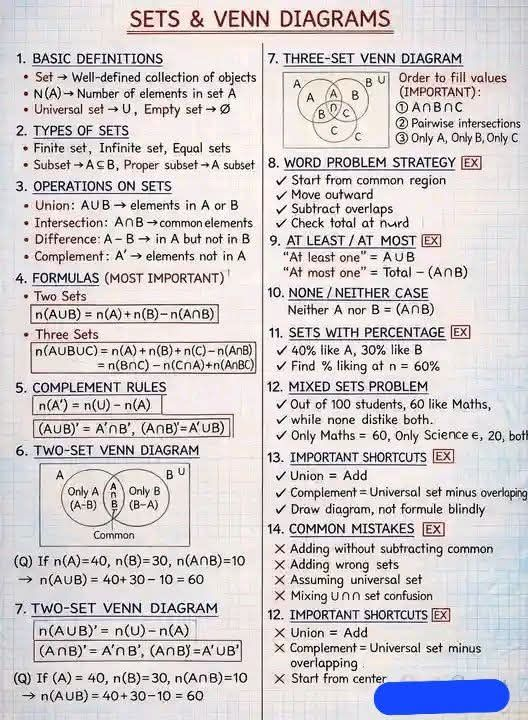 SETS & VENN DIAGRAMS
1. BASIC DEFINITIONS
• Set → Well-defined collection of objects
• N(A) → Number of elements in set A
• Universal set → U, Empty set → Ø
2. TYPES OF SETS
• Finite set, Infinite set, Equal sets
• Subset → A ⊆ B, Proper subset → A subset
3. OPERATIONS ON SETS
• Union: A∪B → elements in A or B
• Intersection: A∩B → common elements
• Difference: A – B → in A but not in B
• Complement: A′ → elements not in A
4. FORMULAS (MOST IMPORTANT)
• Two Sets
n(A∪B) = n(A) + n(B) – n(A∩B)
• Three Sets
n(A∪B∪C) = n(A) + n(B) + n(C) – n(A∩B)
= n(B∩C) – n(C∩A) + n(A∩BC)
5. COMPLEMENT RULES
n(A′) = n(U) – n(A)
(A∪B)′ = A′∩B′, (A∩B)′= A′∪B)
6. TWO-SET VENN DIAGRAM
A B U
Only A
(A–B)
A
∩
B
Only B
(B–A)
Common
(Q) If n(A)=40, n(B)=30, n(A∩B)=10
→ n(A∪B) = 40+30 – 10 = 60
7. TWO-SET VENN DIAGRAM
n(A∪B)′ = n(U) – n(A)
(A∩B)′ = A′∩B′, (A∩B)′=A′∪B′
(Q) If (A) = 40, n(B)=30, n(A∩B)=10
→ n(A∪B) = 40+30–10 = 60
7. THREE-SET VENN DIAGRAM
A B U
A A B
∩
B C
C
C
Order to fill values
(IMPORTANT):
① A∩B∩C
② Pairwise intersections
③ Only A, Only B, Only C
8. WORD PROBLEM STRATEGY EX
✓ Start from common region
✓ Move outward
✓ Subtract overlaps
✓ Check total at
9. AT LEAST / AT MOST EX
“At least one” = A∪B
“At most one” = Total – (A∩B)
10. NONE / NEITHER CASE
Neither A nor B = (A∩B)
11. SETS WITH PERCENTAGE EX
✓ 40% like A, 30% like B
✓ Find % liking at n = 60%
12. MIXED SETS PROBLEM
✓ Out of 100 students, 60 like Maths,
✓ while none distike both.
✓ Only Maths = 60, Only Science ∈, 20, bot
13. IMPORTANT SHORTCUTS EX
✓ Union = Add
✓ Complement = Universal set minus overlaping
✓ Draw diagram, not formule blindly
14. COMMON MISTAKES EX
✕ Adding without subtracting common
✕ Adding wrong sets
✕ Assuming universal set
✕ Mixing ∪∩∩ set confusion
12. IMPORTANT SHORTCUTS EX
✕ Union = Add
✕ Complement = Universal set minus
overlapping
✕ Start from center